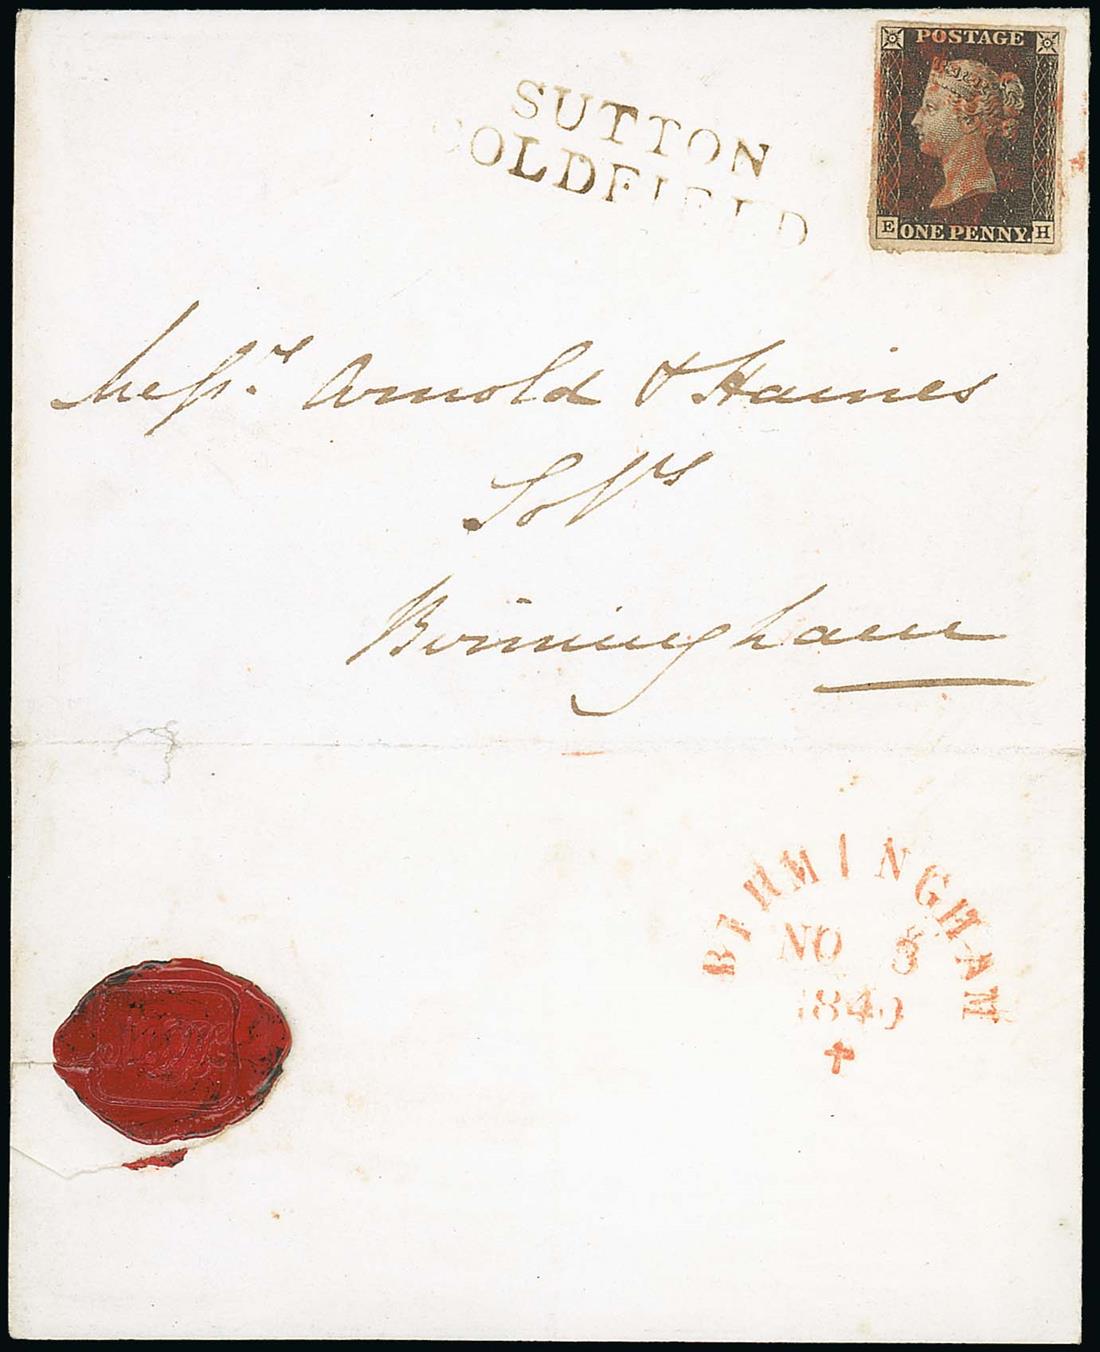 POSTAGE
E ONE PENNY. H
SUTTON
COLDFIELD
Messrs. Arnold & Haines
Solrs
Birmingham
BIRMINGHAM
NO 3
1840